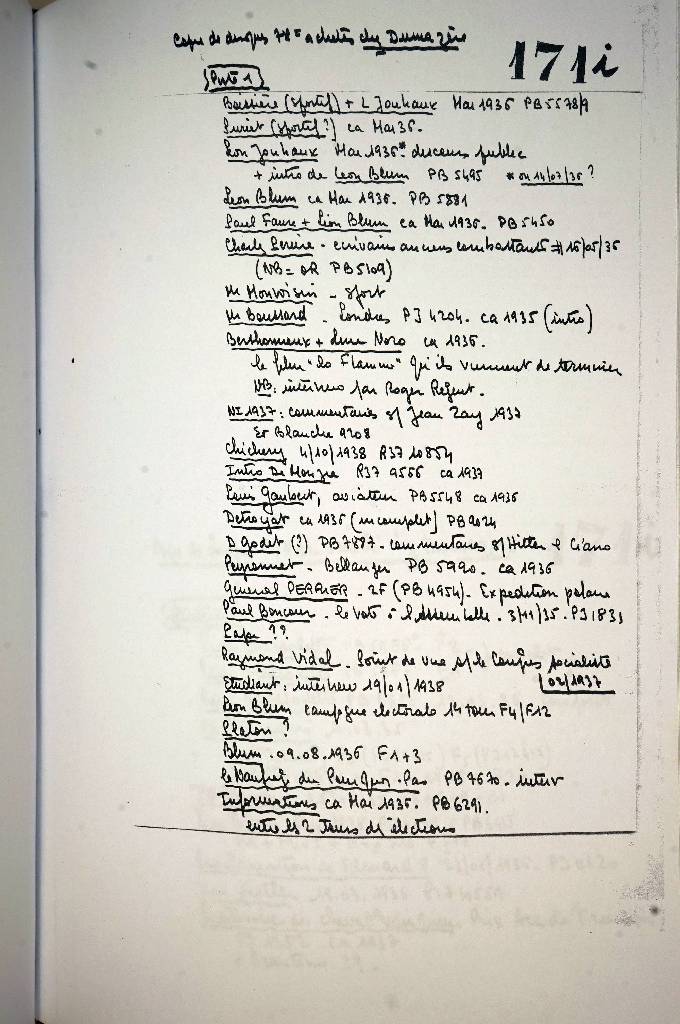 Copie de disques 78T achetés chez Dumazère
171i
Piste 1
Boissière (sportif) + L Jouhaux Mai 1936 PB5578/9
(sportif?) ca Mai 36.
Léon Jouhaux Mai 1936* discours public
+ intro de Léon Blum PB 5495 * ou 14/07/36 ?
Léon Blum ca Mai 1936. PB 5881
Paul Faure + Léon Blum ca Mai 1936. PB 5450
- écrivains anciens combattants # 16/05/36
(NB = OR PB5109)
Mr Monvoisin - sport
Mr Boussard - Londres PJ 4204. ca 1935 (intro)
Berthomieux + Line Noro ca 1936.
le film "La Flamme" qu'ils viennent de terminer
NB: interview par Roger Régent.
NI 1937: commentaires s/ Jean Zay 1937
Et Blanche 9208
Chichery 4/10/1938 R37 10854
Intro De Monzie R37 9556 ca 1937
Louis Gaubert, aviateur PB5548 ca 1936
Detroyat ca 1936 (incomplet) PB2024
D Godet (?) PB 7887 - commentaires s/ Hitler & Ciano
Peyronnet - Bellanger PB 5990. ca 1936
Général PERRIER - 2F (PB 4954). Expédition polaire
Paul Boncour - le vote à l'Assemblée. 3/11/35. PJ 183
??
Raymond Vidal. Point de vue s/ le Congrès socialiste
02/1937
Etudiant: interview 19/01/1938
Léon Blum campagne électorale 1er tour F4/F12
Platon ?
Blum. 09.08.1936 F1+3
le Naufrage du Pourquoi-Pas PB 7670. interv
Informations ca Mai 1936. PB6291.
entre les 2 Tours des élections